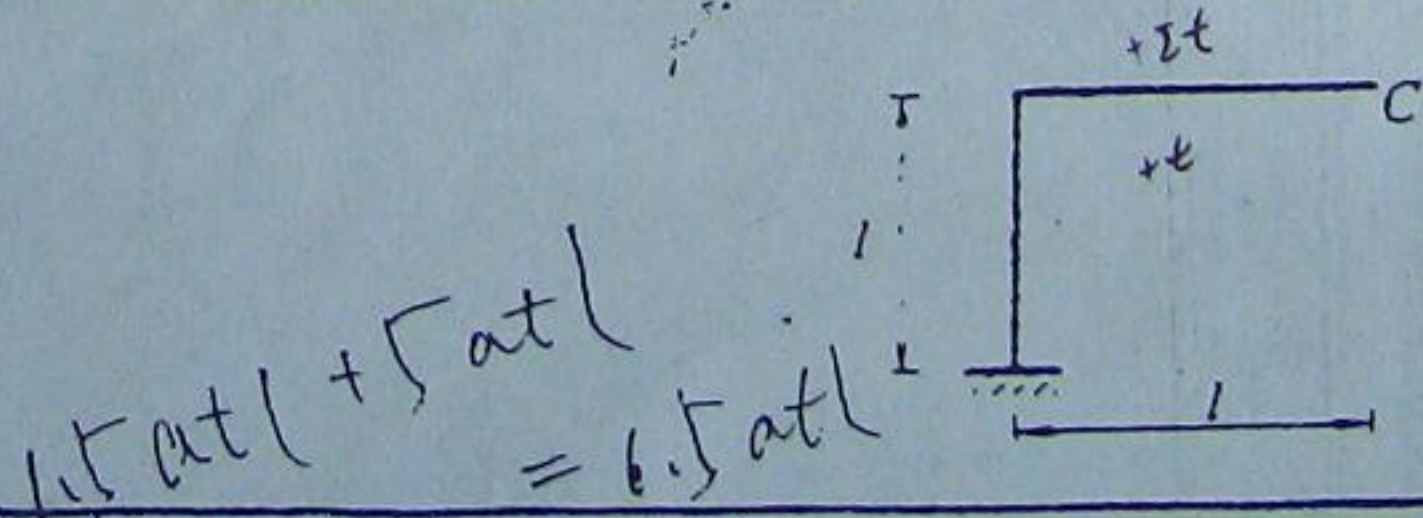 +2t
C
+t
l
l
1.5 atl + 5 atl
= 6.5 atl